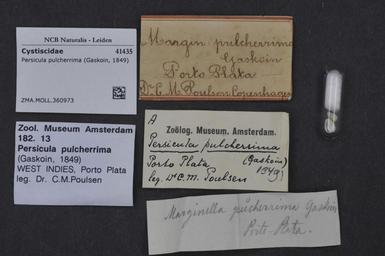 NCB Naturalis - Leiden
Cystiscidae 41435
Persicula pulcherrima (Gaskoin, 1849)
ZMA.MOLL.360973
Margin. pulcherrima
Gaskoin
Porto Plata
Dr. C. M. Poulsen Copenhagen
Zool. Museum Amsterdam
182. 13
Persicula pulcherrima
(Gaskoin, 1849)
WEST INDIES, Porto Plata
leg. Dr. C.M.Poulsen
A
Zoölog. Museum. Amsterdam.
Persicula pulcherrima
(Gaskoin)
Porto Plata 1849
leg. Dr C. M. Poulsen
Marginella pulcherrima Gaskoin
Porto-Plata.